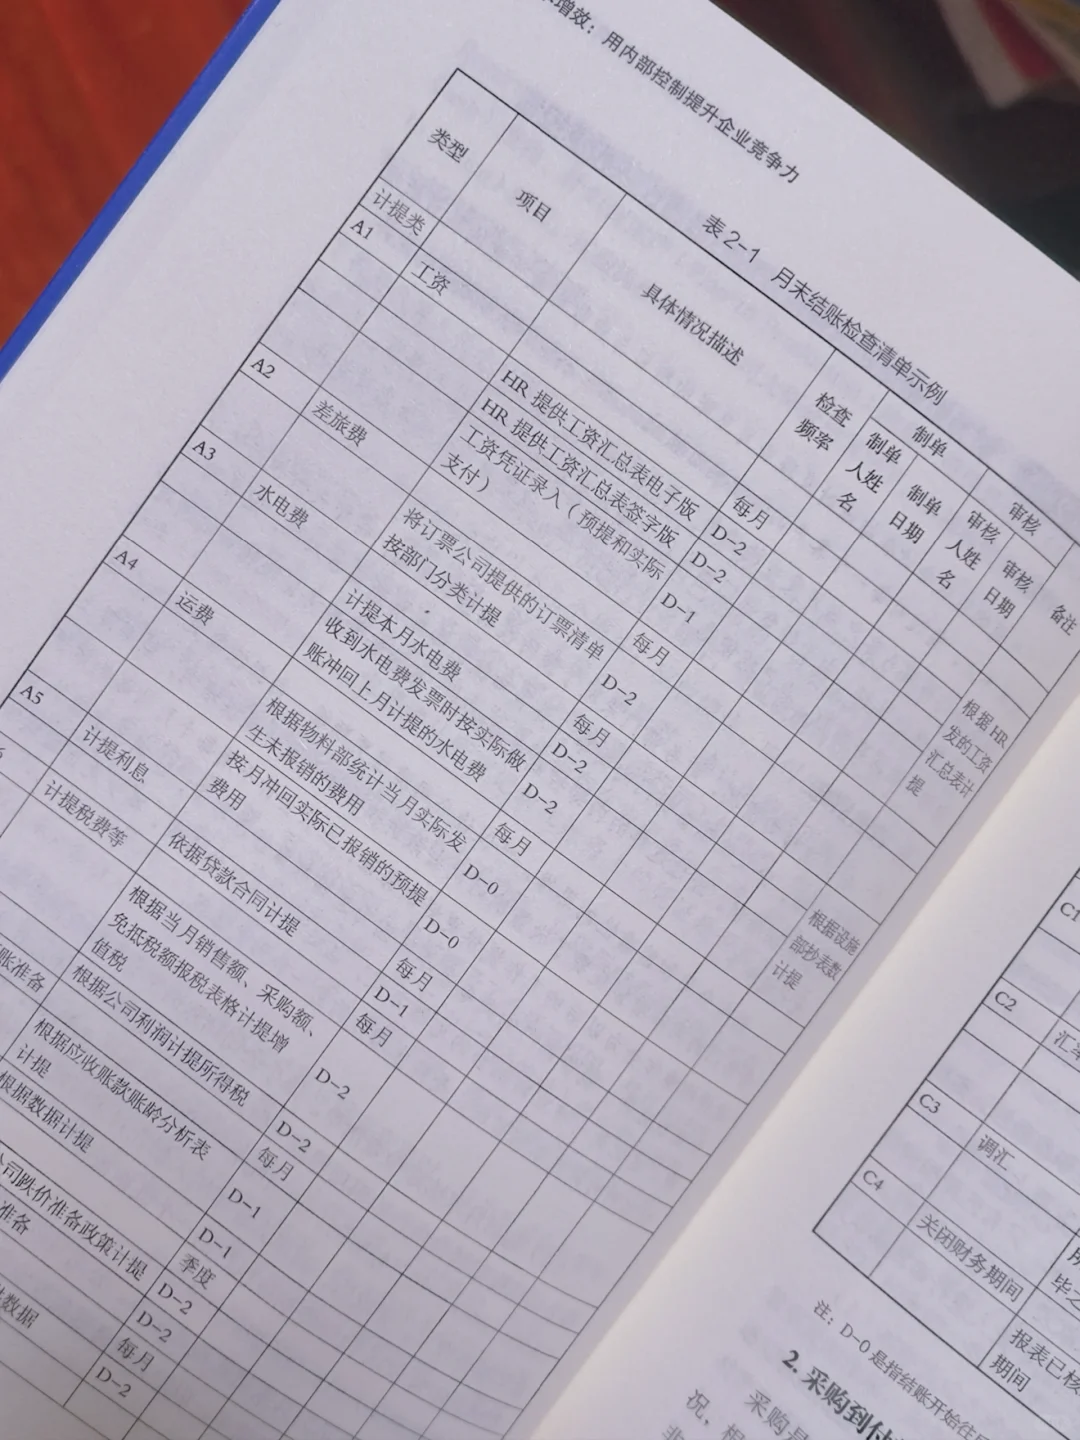 增效：用内部控制提升企业竞争力
表2-1 月末结账检查清单示例
类型
项目
具体情况描述
检查
频率
制单
制单
人姓
名
制单
日期
审核
审核
人姓
名
审核
日期
备注
计提类
A1
工资
每月
HR 提供工资汇总表电子版
D-2
HR 提供工资汇总表签字版
D-2
工资凭证录入（预提和实际
支付）
D-1
根据 HR
发的工资
汇总表计
提
A2
差旅费
每月
将订票公司提供的订票清单
按部门分类计提
D-2
A3
水电费
每月
计提本月水电费
D-2
收到水电费发票时按实际做
账冲回上月计提的水电费
D-2
根据设施
部抄表数
计提
A4
运费
每月
根据物料部统计当月实际发
生未报销的费用
D-0
按月冲回实际已报销的预提
费用
D-0
A5
计提利息
每月
依据贷款合同计提
D-1
计提税费等
每月
根据当月销售额、采购额、
免抵税额报税表格计提增
值税
D-2
根据公司利润计提所得税
D-2
账准备
每月
根据应收账款账龄分析表
计提
D-1
根据数据计提
D-1
季度
公司跌价准备政策计提
D-2
准备
D-2
每月
数据
D-2
C1
C2
汇率
C3
调汇
C4
关闭财务期间
毕之
报表已核
期间
注：D-0 是指结账开始往
2. 采购到付
采购是
况，根
非